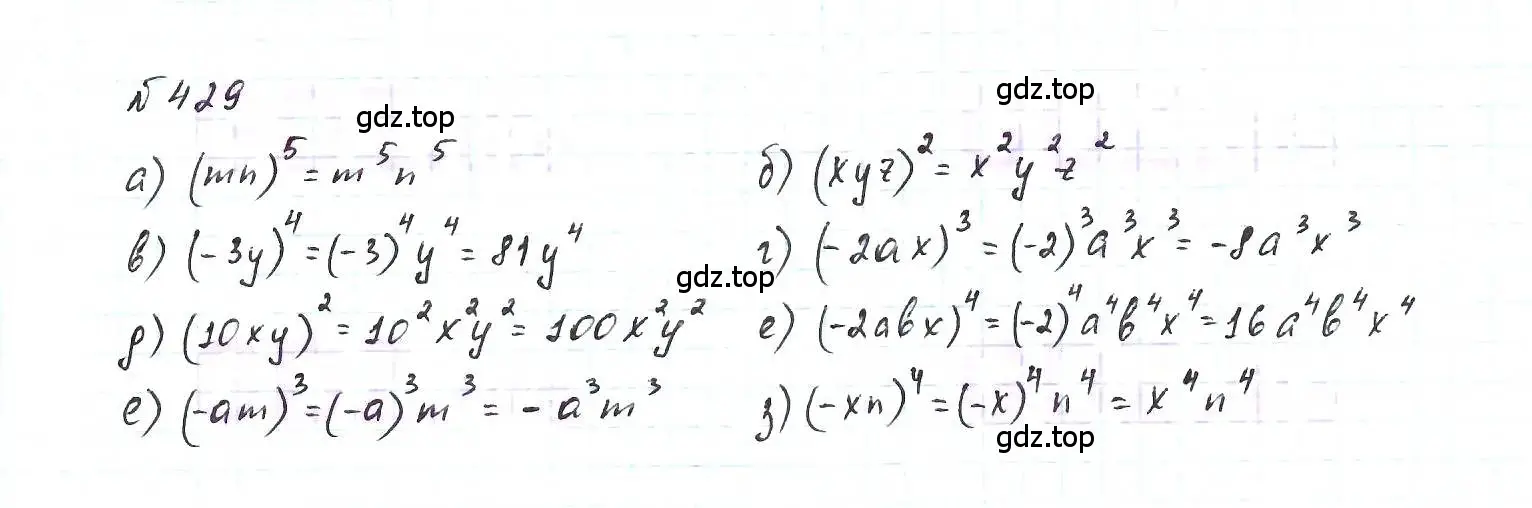 № 429
gdz.top
gdz.top
а) (mn)⁵ = m⁵n⁵
б) (xyz)² = x²y²z²
в) (-3y)⁴ = (-3)⁴y⁴ = 81y⁴
г) (-2ax)³ = (-2)³a³x³ = -8a³x³
gdz.top
д) (10xy)² = 10²x²y² = 100x²y²
е) (-2abx)⁴ = (-2)⁴a⁴b⁴x⁴ = 16a⁴b⁴x⁴
е) (-am)³ = (-a)³m³ = -a³m³
з) (-xn)⁴ = (-x)⁴n⁴ = x⁴n⁴
gdz.top